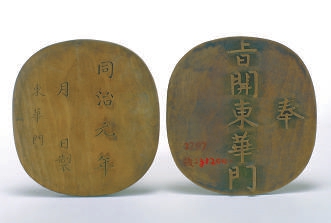 同治元年
月　日製
東華門
奉
旨開東華門